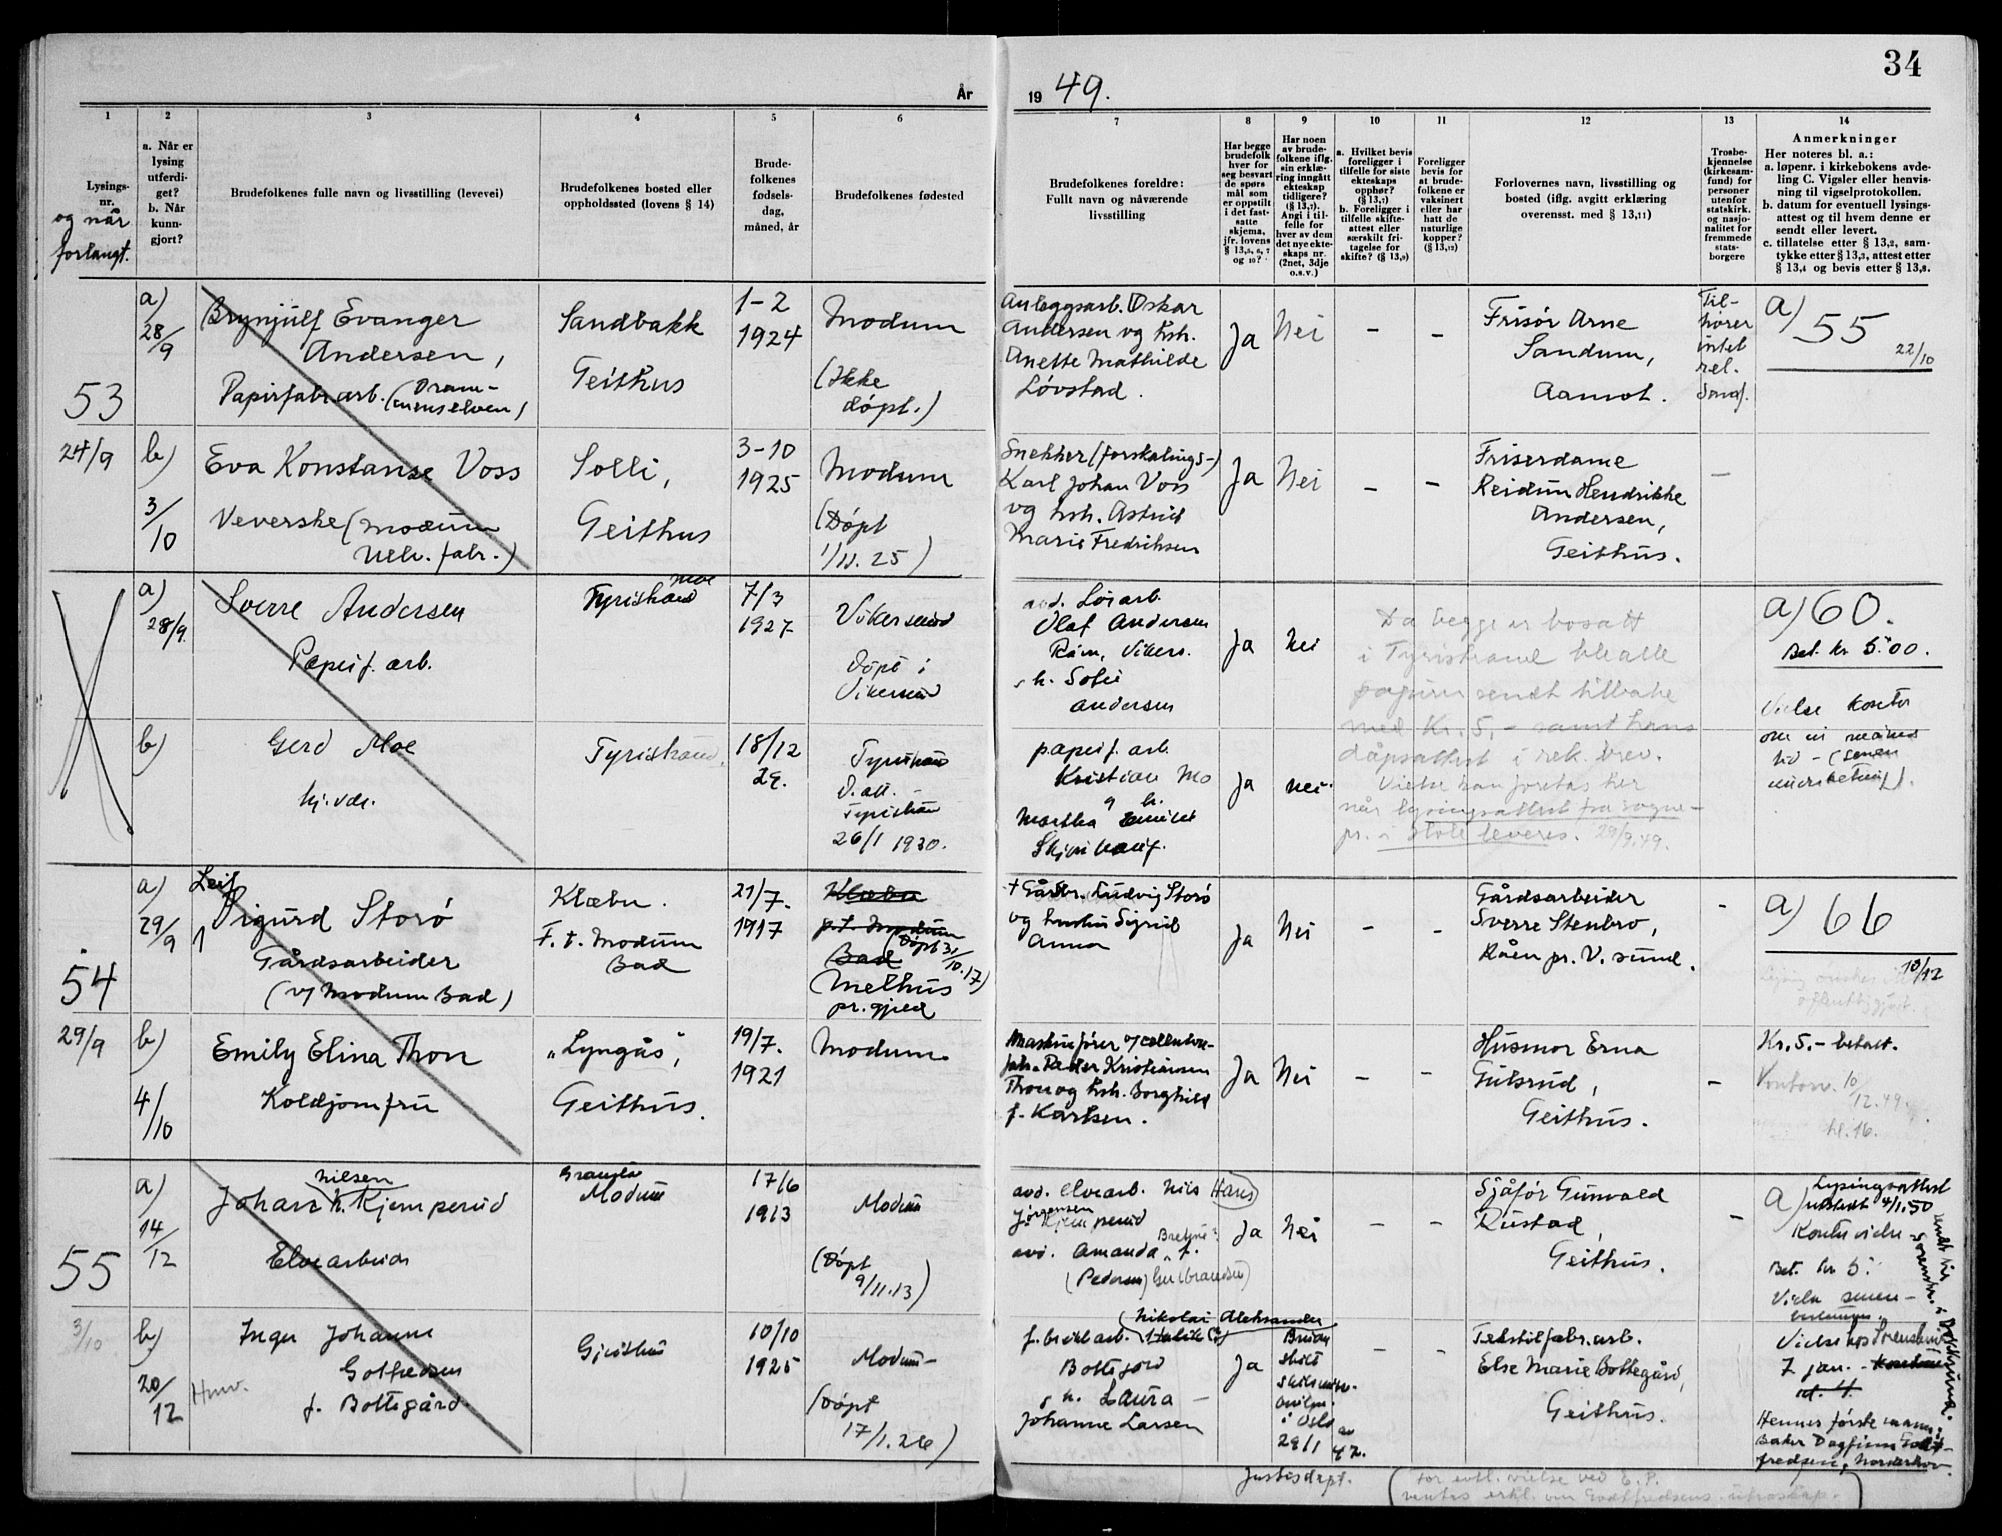 34
År
19 49.
1
2
3
4
5
6
7
8
9
10
11
12
13
14
Lysings-
nr.
og når
forlangt.
a. Når er
lysing
utferdi-
get?
b. Når
kunn-
gjort?
Brudefolkenes fulle navn og livsstilling (levevei)
Brudefolkenes bosted eller
oppholdssted (lovens § 14)
Brude-
folkenes
fødsels-
dag,
måned, år
Brudefolkenes fødested
Brudefolkenes foreldre:
Fullt navn og nåværende
livsstilling
Har begge
brudefolk
hver for
seg besvart
de spørs
mål som
er oppstilt
i det fast-
satte
skjema,
jfr. lovens
§ 13,5, 6, 7
og 10?
Har noen
av brude-
folkene iflg.
sin erklæ-
ring inngått
ekteskap
tidligere?
(§ 13,7).
Angi i til-
felle for
hver av dem
det nye ekte-
skaps nr.
(2net, 3dje
o.s.v.)
a. Hvilket bevis
foreligger i
tilfelle for siste
ekteskaps
opphør?
(§ 13,7)
b. Foreligger i
tilfelle skifte-
attest eller
særskilt fri-
tagelse for
skifte? (§ 13,9)
Foreligger
bevis for
at brude-
folkene er
vaksinert
eller har
hatt de
naturlige
kopper?
(§ 13,12)
Forlovernes navn, livsstilling og
bosted (iflg. avgitt erklæring
overensst. med § 13,11)
Trosbe-
kjennelse
(kirkesam-
fund) for
personer
utenfor
statskirk.
og nasjo-
nalitet for
fremmede
stats-
borgere
Anmerkninger
Her noteres bl. a.:
a. løpenr. i kirkebokens avde-
ling C. Vigsler eller henvis-
ning til vigselprotokollen.
b. datum for eventuell lysings-
attest og til hvem denne er
sendt eller levert.
c. tillatelse etter § 13,2, sam-
tykke etter § 13,3, attest etter
§ 13,4 og bevis etter § 13,8.
53
24/9
a)
28/9
Brynjulf Evanger
Andersen,
Papirfabr.arb. (Dram-
menselven)
Sandbakk
Geithus
1-2
1924
Modum
(Ikke
døpt.)
Anleggsarb. Oskar
Andersen og hsh.
Anette Mathilde
Løvstad.
Ja
Nei
–
–
Frisør Arne
Sandum,
Aamot.
Til-
hører
intet
rel.
samf.
a) 55
22/10
b)
3/10
Eva Konstanse Voss
Veverske (Modum
Uldv. fabr.)
Solli,
Geithus
3-10
1925
Modum
(Døpt
1/11. 25)
Snekker (forskalings-)
Karl Johan Voss
og hsh. Astrid
Marie Fredriksen
Ja
Nei
–
–
Friserdame
Reidun Hendrikke
Andersen,
Geithus.
–
a)
28/9.
Sverre Andersen
Papirf. arb.
Tyristrand
7/3
1927
Vikersund
Døpt i
Vikersund
Olaf Andersen
Råen, Vikers.
h. Sofie
Andersen
Ja
Nei
Da begge er bosatt
i Tyristrand ble alle
papirer sendt tilbake
med Kr. 5,- samt hans
dåpsattest i rek. brev.
Vielse kan foretas her
når lysingsattest fra sogne-
pr. i Hole leveres. 29/9.49.
a) 60.
Bet. kr 5.00.
Vielse kontor
b)
Gerd Moe
hj.vær.
Tyristrand.
18/12
29.
Tyristrand
D.att.
Tyristrand
26/1 1930.
papirf. arb.
Kristian Mo
g h.
Martha
Ja
nei.
54
29/9
a)
29/9
Leif
Sigurd Storø
Gårdsarbeider
(v/ Modum Bad)
Klæbu.
F. t. Modum
Bad
21/7.
1917
Klæbu
p.t. Modum
Bad
(Døpt 31/10.17)
Melhus
pr.gjeld
+ Gårdbr. Ludvig Storø
og hustru Sigrid
Anna
Ja
Nei
-
-
Gårdsarbeider
Sverre Stenbro,
Råen pr. V. sund.
-
a) 66
10/12
b)
4/10
Emily Elina Thon
Koldjomfru
"Lyngås",
Geithus.
19/7.
1921
Modum
Maskinfører v/ cellulose-
fabr. Peder Kristiansen
Thon og hsh. Borghild
f. Karlsen.
Ja
Nei
–
-
Husmor Erna
Gulsrud,
Geithus.
–
Kr. 5.- betalt.
Kontor. 10/12.49.
kl. 16.
55
3/10
a)
14/12
Nilsen
Johan N. Kjemperud
Elvearbeider
Modum
17/6
1913
Modum
(Døpt
9/11.13)
avd. elvearb. Nils Hans
Jørgensen
Kjemperud
avd. Amanda f.
(Pedersen) Gulbrandsen
Ja
Nei
–
–
Sjåfør Gunvald
Rustad,
Geithus.
–
a) Lysingsattest
utstedt 4/1.50
Bet. kr 5.
b)
20/12
Inger Johanne
Gotfredsen
f. Bottegård
Geithus
10/10
1925
Modum
(Døpt
17/1.26)
(Nikolai Aleksander
Bottegård
g h. Laura
Johanne Larsen
Ja
i Oslo
29/1 47.
–
–
Tekstilfabr.arb.
Else Marie Bottegård,
Geithus.
Vielse hos Sorenskriver
7 jan.
Hennes første mann:
Baker Dagfinn Gott-
fredsen, Norderhov.
Justisdept.
(for evtl. vielse ved E. P.
ventes erkl. om Godtfredsens utroskap.)